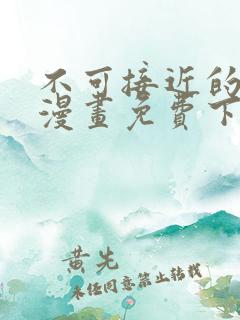 不可接近的
漫畫免費下
黄先
未经同意禁止转载